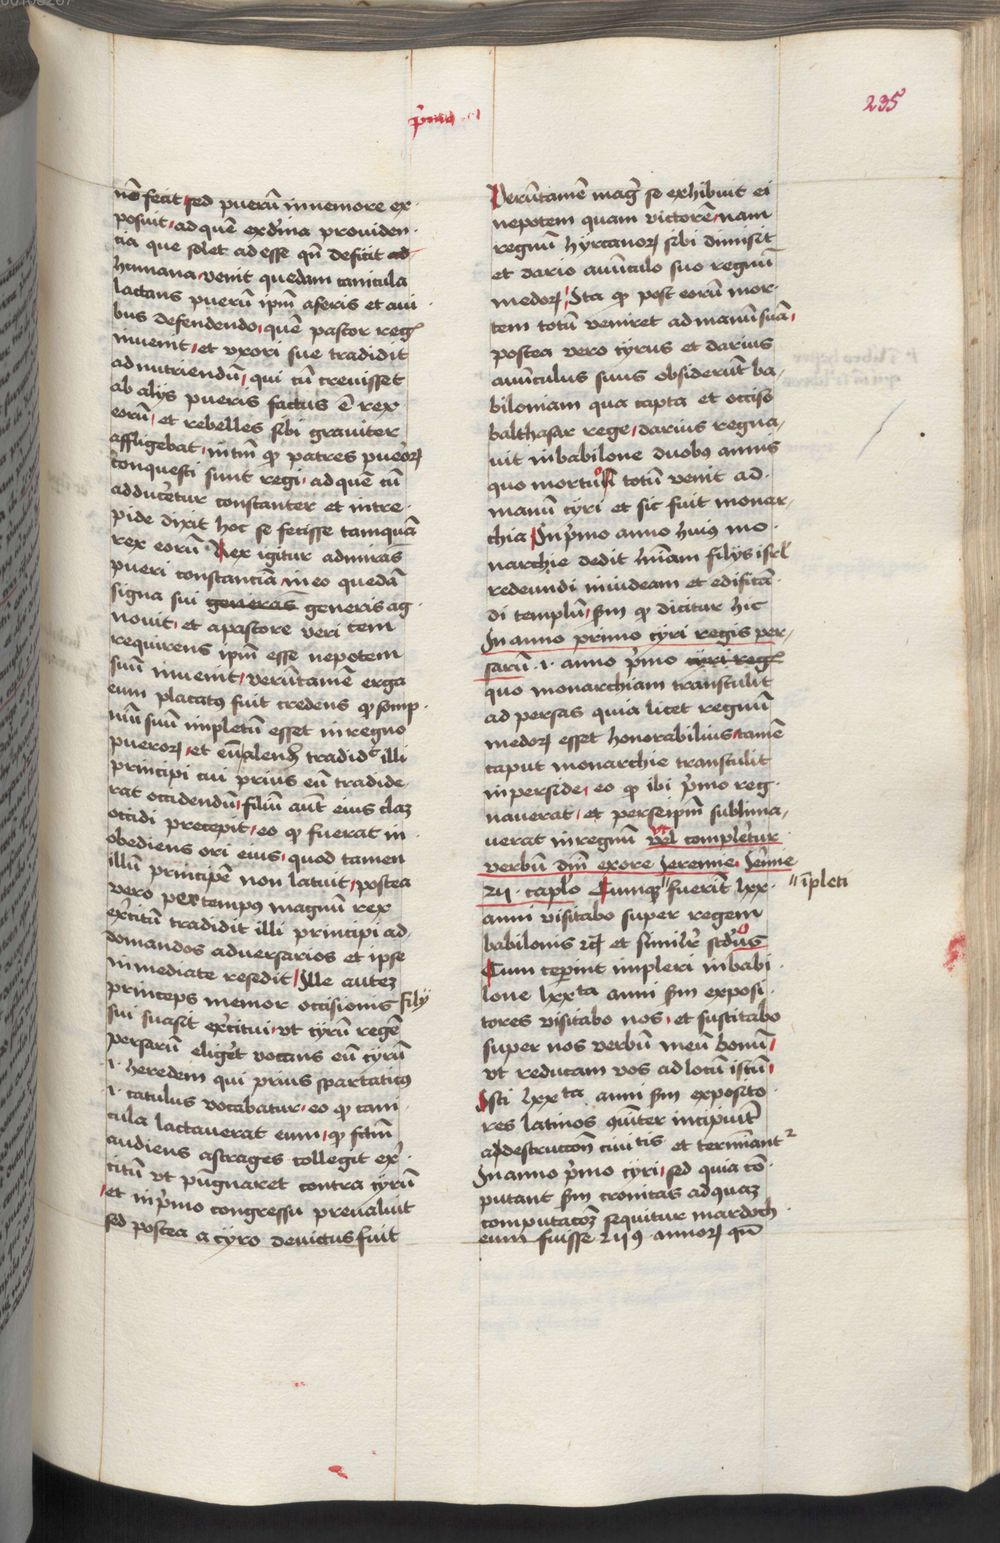 p̄mo
235
nō fecit sed puerū in nemore ex
posuit ad quē ex dīna prouiden
cia que solet adesse qn̄ deficit ad
humana venit quedam canicula
lactans puerū ipm̄ a feris et aui
bus defendendo quē pastor reg
inuenit et vxori sue tradidit
ad nutriendū qui cū creuisset
ab alijs pueris factus ē rex
eorū et rebelles sibi grauiter
affligebat in tm̄ qꝫ patres pueroꝝ
conquesti sunt regi ad quē cū
adduceretur constanter et intre
pide dixit hoc se fecisse tamquā
rex eorū Rex igitur admirās
pueri constanciā in eo quedā
signa sui generās generis ag
nouit et a pastore veritatem
requirens ipm̄ esse nepotem
suū inuenit verūtamē erga
eum placatꝰ fuit credens qꝫ somp
niū suū impletū esset in regno
pueroꝝ et eū alend tradidit illi
principi cui prius eū tradide
rat occidendū filiū aūt eius
occidi precepit eo qꝫ fuerat in
obediens ori eius quod tamen
illū principē non latuit postea
vero per tempus magnū rex
exercitū tradidit illi principi ad
domandos aduersarios et ipse
in mediate resedit Ille autez
princeps memor occisionis filij
sui suasit exercitui vt cyrū regē
persarū eligeret vocans eū cyrū
.i. heredem qui prius spartaticꝰ
.i. catulus vocabatur eo qꝫ cani
cula lactauerat eum qꝫ fcm̄
audiens astrages collegit exer
citū vt pugnaret contra cyrū
et in p̄mo congressu preualuit
sed postea a cyro deuictus fuit
Verūtamē mag se exhibuit ei
nepotem quam victorē nam
regnū hyrcanoꝝ sibi dimisit
et dario auūculo suo regnū
medoꝝ Ita qꝫ post eorū mor
tem totū veniret ad manū suā
postea vero cyrus et darius
auūculus suus obsiderūt ba
biloniam qua capta et occiso
balthasar rege darius regna
uit in babilone duobꝰ annis
quo mortuo totū venit ad
manū cyri et sic fuit monar
chia In p̄mo anno huiꝰ mo
narchie dedit licenciam filijs isrl
redeundi in iudeam et edifican
di templū sm̄ qꝫ dicitur hic
In anno primo cyri regis per
sarū .i. anno p̄mo cyri reg
quo monarchiam transtulit
ad persas quia licet regnū
medoꝝ esset honorabilius tamē
caput monarchie transtulit
in perside eo qꝫ ibi p̄mo reg
nauerat et per se ipm̄ sublima
uerat in regnū vt completur
verbū dni ex ore Jeremie Jeremie
capło Cumqꝫ fuerīt lxx
impleti
anni visitabo super regem
babilonis
Cum ceperint impleri in babi
lone lxxta anni sm̄ exposi
tores visitabo nos et suscitabo
super nos verbū meū bonū
vt reducam vos ad locū istū
Isti lxxta anni sm̄ exposito
res latinos incipiunt
a destruccōe ciuitatis et terminant
In anno p̄mo cyri sed quia cō
putant sm̄ cronicas ad quaz
computacōez sequitur mardoch
eum fuisse annoꝝ qn̄